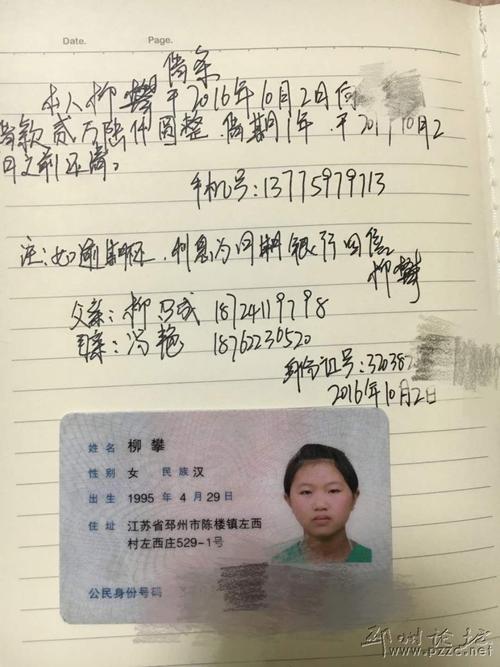 Date. Page.
借条
本人柳攀于2016年10月2日向
借款贰万陆仟圆整.借期1年.于201710月2
日之前还清。
手机号:13775979713
注:如逾期还.利息为同期银行
柳攀
父亲:柳 18724119798
母亲:冯艳 18762230520
身份证号:320382
2016年10月2日
姓名 柳攀
性别 女 民族 汉
出生 1995年4月29日
住址 江苏省邳州市陈楼镇左西
村左西庄529-1号
公民身份号码
邳州论坛
www.pzzc.net